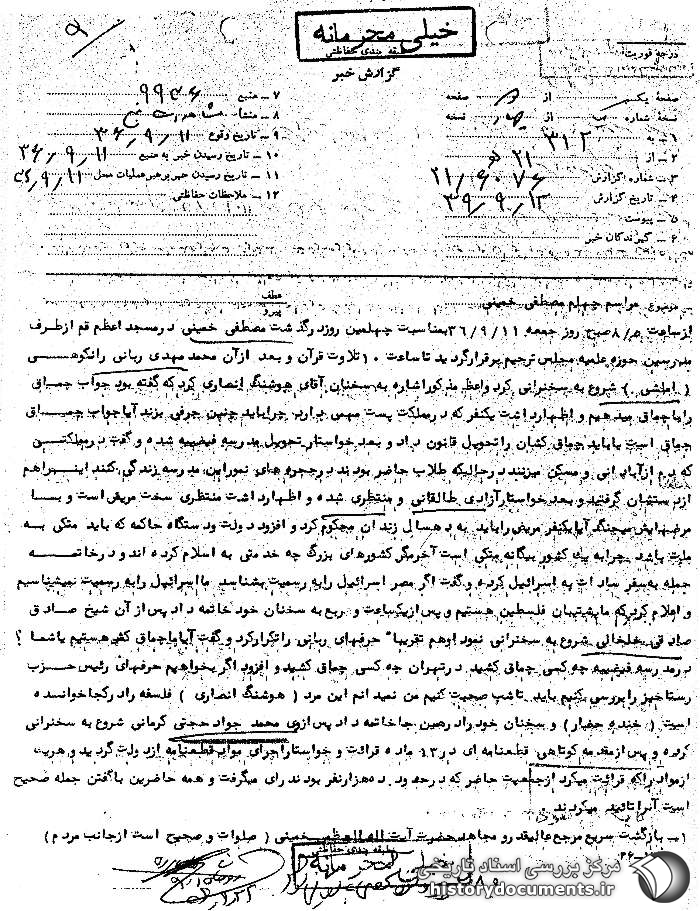 خیلی محرمانه
طبقه بندی حفاظتی
گزارش خبر
درجه فوریت
صفحه یک از دو صفحه
نسخه شماره از چهار نسخه
۱ - به ۳۱۲
۲ - از ۲۱ ه
۳ - شماره گزارش
۴ - تاریخ گزارش
۵ - پیوست
۶ - گیرندگان خبر
۷ - منبع
۸ - منشاء
۹ - تاریخ وقوع ۳۶/۹/۱۱
۱۰ - تاریخ رسیدن خبر به منبع ۳۶/۹/۱۱
۱۱ - تاریخ رسیدن خبر به رهبر عملیات محل
۱۲ - ملاحظات حفاظتی
موضوع مراسم چهلم مصطفی خمینی
عطف
پیرو
از ساعت ۸/۵ صبح روز جمعه ۳۶/۹/۱۱ بمناسبت چهلمین روز درگذشت مصطفی خمینی در مسجد اعظم قم از طرف
مدرسین حوزه علمیه مجلس ترحیم برقرار گردید تا ساعت ۱۰ تلاوت قرآن و بعد از آن محمد مهدی ربانی رانکوهی
( املشی ) شروع به سخنرانی کرد واعظ مذکور اشاره به سخنان آقای هوشنگ انصاری کرد که گفته بود جواب چماق
را با چماق میدهیم و اظهار داشت یکنفر که در مملکت پست مهمی دارد چرا باید چنین حرفی بزند آیا جواب چماق
چماق است یا باید چماق کشان را تحویل قانون داد و بعد خواستار تحویل مدرسه فیضیه شده و گفت در مملکتی
که دم از آبادانی و مسکن میزنند در حالیکه طلاب حاضر بودند در حجره های نمور این مدرسه زندگی کنند اینرا هم
از دستشان گرفتید و بعد خواستار آزادی طالقانی و منتظری شده و اظهار داشت منتظری سخت مریض است و بسا
مرضهایش میجنگد آیا یکنفر مریض را باید به ده سال زندان محکوم کرد و افزود دولت و دستگاه حاکمه که باید متکی به
ملت باشد چرا به یک کشور بیگانه متکی است آخر مگر کشورهای بزرگ چه خدمتی به اسلام کرده اند و در خاتمه
حمله به سفر سادات به اسرائیل کرده و گفت اگر مصر اسرائیل را به رسمیت بشناسد ما اسرائیل را به رسمیت نمیشناسیم
و اعلام کرد که ما پشتیبان فلسطین هستیم و پس از یکساعت و ربع به سخنان خود خاتمه داد پس از آن شیخ صادق
صادقی خلخالی شروع به سخنرانی نمود او هم تقریبا" حرفهای ربانی را تکرار کرد و گفت آیا ما چماق کش هستیم یا شما ؟
در مدرسه فیضیه چه کسی چماق کشید در تهران چه کسی چماق کشید و افزود اگر بخواهیم حرفهای رئیس حزب
رستاخیز را بررسی کنیم باید تا شب صحبت کنیم من نمیدانم این مرد ( هوشنگ انصاری ) فلسفه را در کجا خوانده
است ( خنده حضار ) و سخنان خود را در همین جا خاتمه داد پس از وی محمد جواد حجتی کرمانی شروع به سخنرانی
کرده و پس از مقدمه کوتاهی قطعنامه ای در ۱۴ ماده قرائت و خواستار اجرای مواد قطعنامه از دولت گردید و هریک
از مواد را که قرائت میکرد از جمعیت حاضر که در حدود ده هزار نفر بودند رای میگرفت و همه حاضرین با گفتن جمله صحیح
است آنرا تائید میکردند
۱ - بازگشت سریع مرجع عالیقدر و مجاهد حضرت آیت الله العظمی خمینی ( صلوات و صحیح است از جانب مردم )
طبقه بندی حفاظتی
خیلی محرمانه
مرکز بررسی اسناد تاریخی
historydocuments.ir